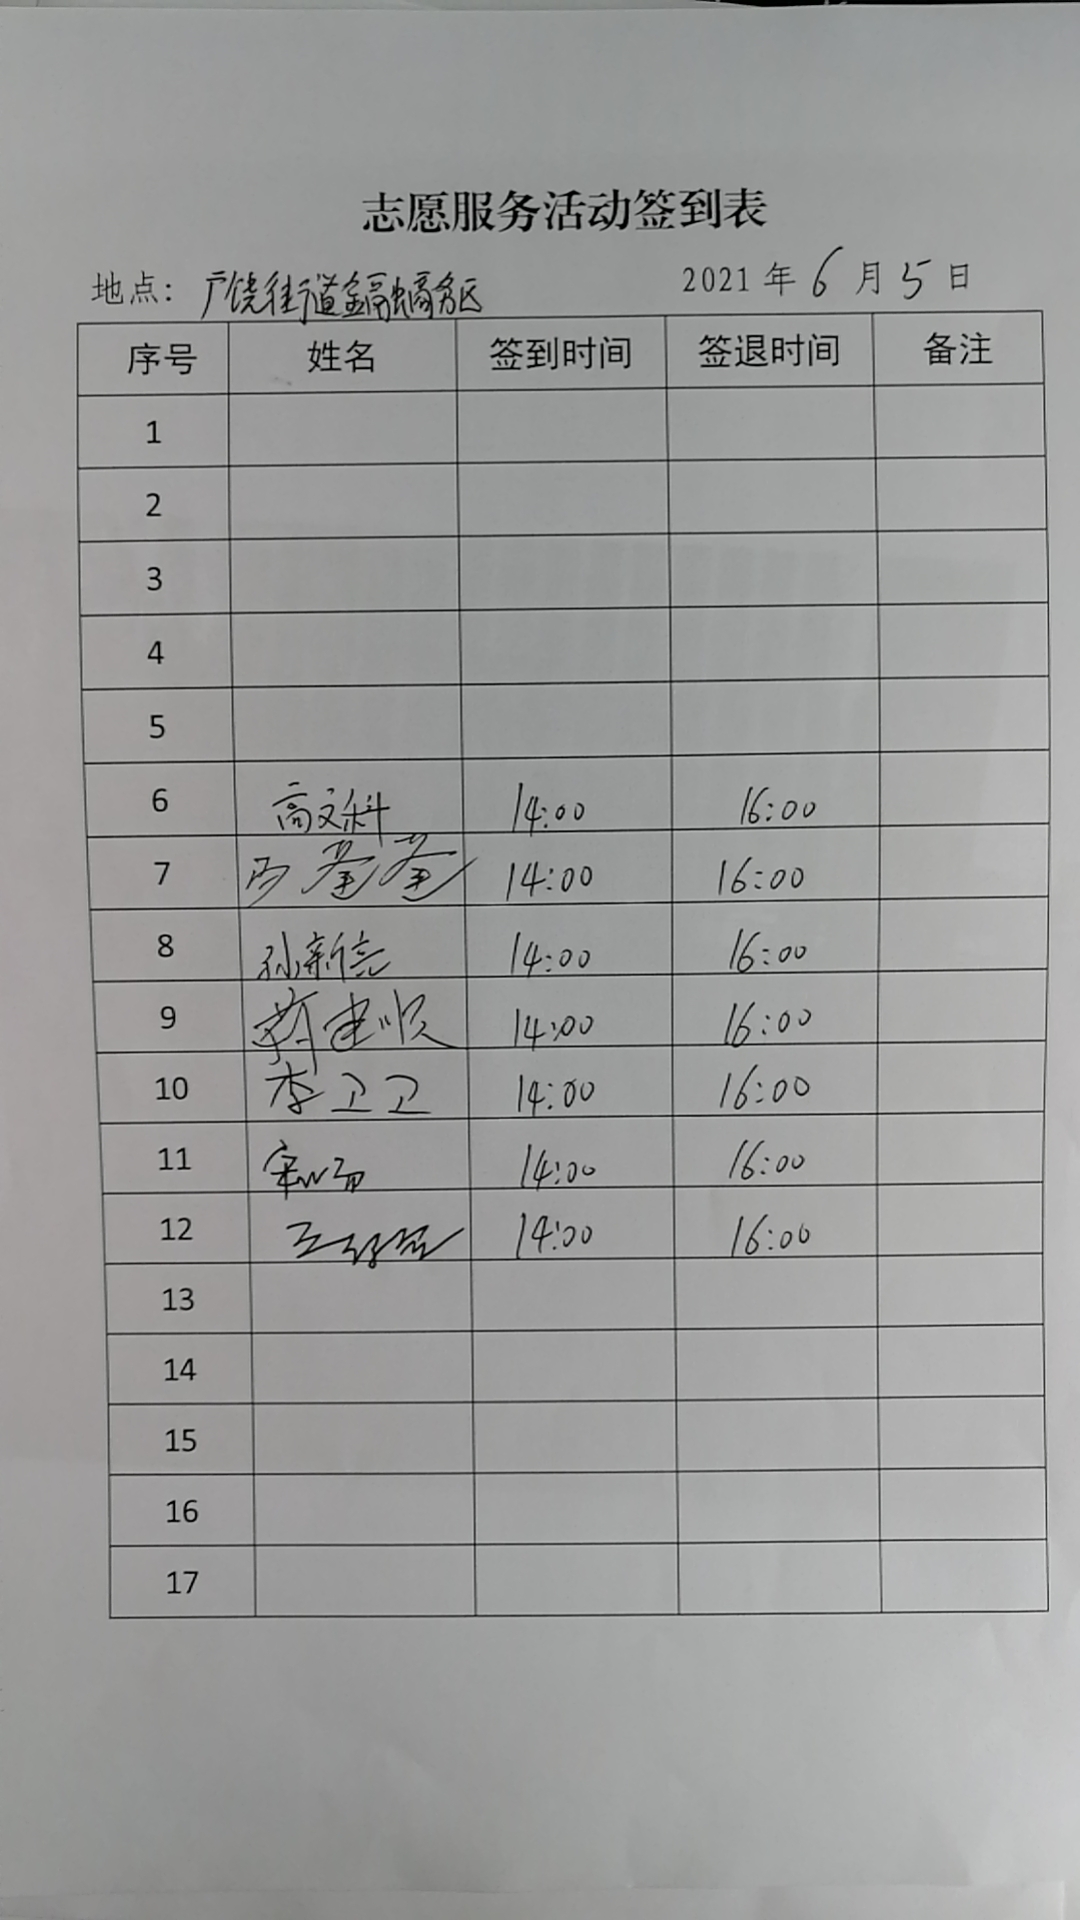 志愿服务活动签到表
地点：广饶街道金融商务区 2021年6月5日
序号 姓名 签到时间 签退时间 备注
1
2
3
4
5
6 高文科 14:00 16:00
7 14:00 16:00
8 孙新亮 14:00 16:00
9 蒋建顺 14:00 16:00
10 李卫卫 14:00 16:00
11 14:00 16:00
12 14:00 16:00
13
14
15
16
17